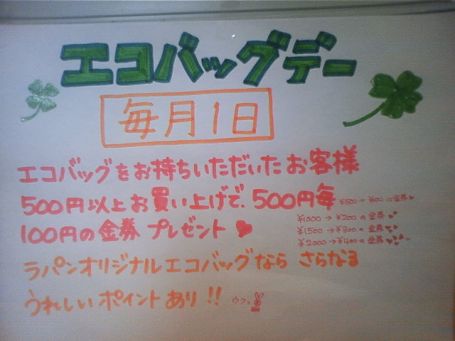 エコバッグデー
毎月1日
エコバッグをお持ちいただいたお客様
500円以上お買い上げで、500円毎
100円の金券プレゼント♥
¥500→¥100の金券♥
¥1000→¥200の金券♥
¥1500→¥300の金券♥
¥2000→¥400の金券
ラパンオリジナルエコバッグなら さらなる
うれしいポイントあり!!